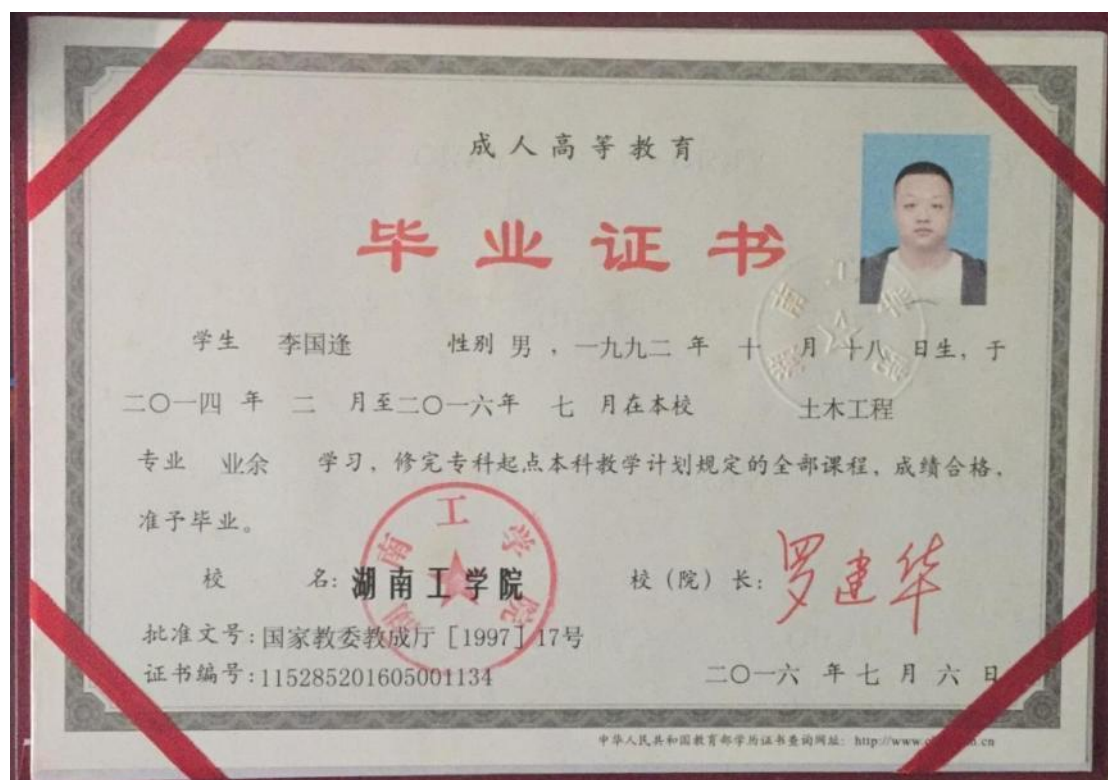 成人高等教育
毕业证书
学生 李国逢 性别 男 ，一九九二 年 十 月 十八 日生，于
二〇一四 年 二 月至二〇一六年 七 月在本校 土木工程
专业 业余 学习，修完专科起点本科教学计划规定的全部课程，成绩合格，
准予毕业。
湖南工学院
校 名：湖南工学院 校（院）长：罗建华
批准文号：国家教委教成厅［1997］17号
证书编号：115285201605001134 二〇一六 年 七 月 六 日
中华人民共和国教育部学历证书查询网址：